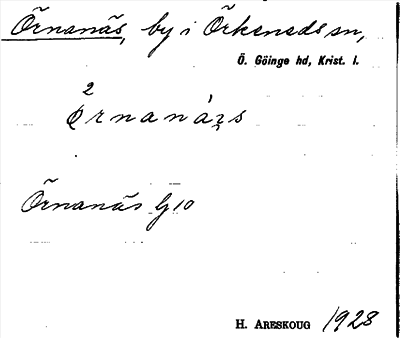 Örnanäs, by i Örkeneds sn,
Ö. Göinge hd, Krist. l.
2
Örnanäs G10
H. Areskoug 1928